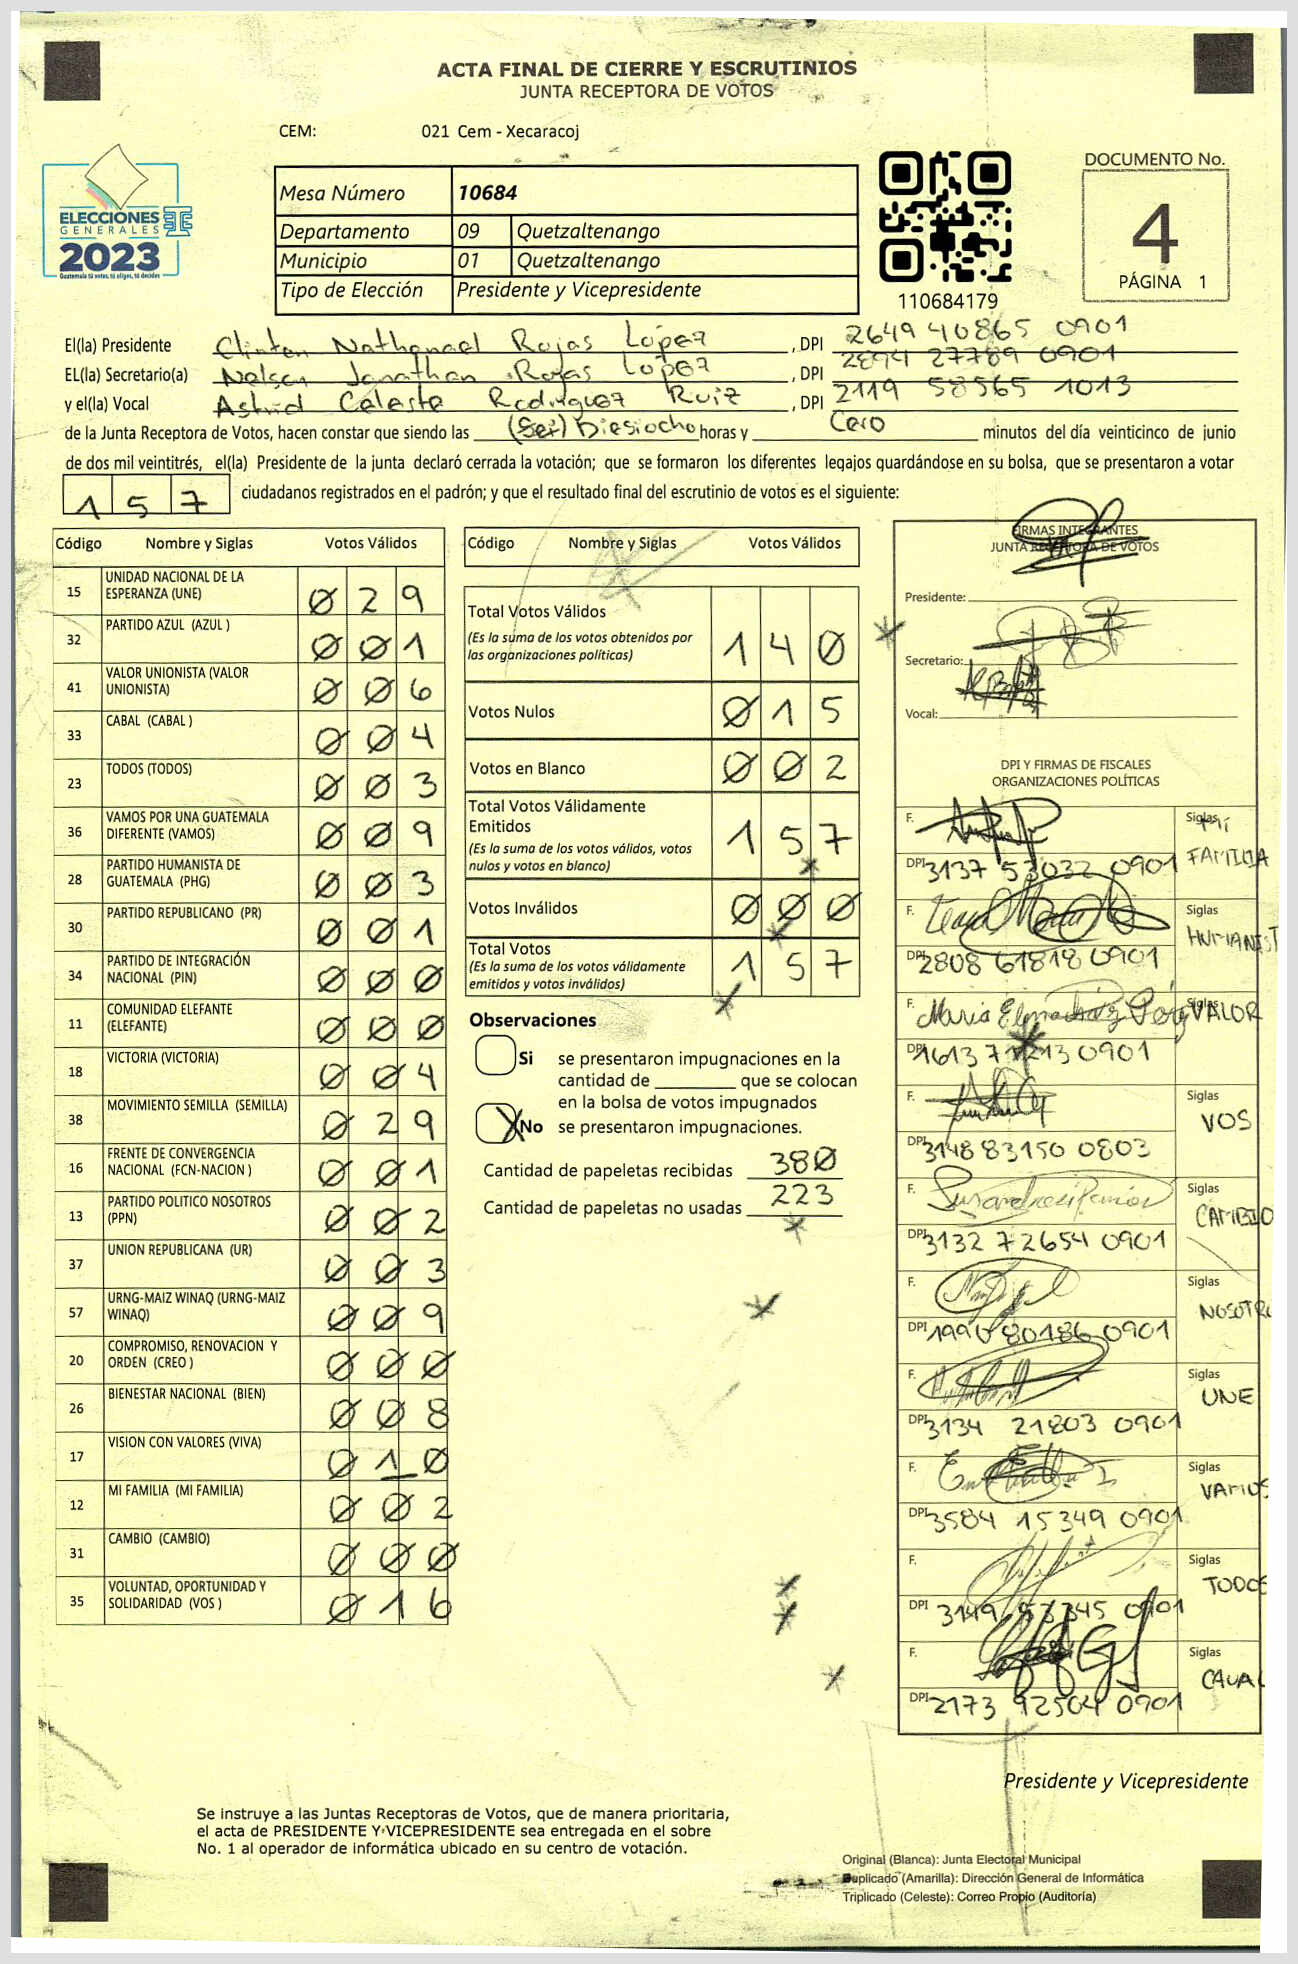 ACTA FINAL DE CIERRE Y ESCRUTINIOS
JUNTA RECEPTORA DE VOTOS
CEM: 021 Cem - Xecaracoj
ELECCIONES
GENERALES
2023
Guatemala tú votas, tú eliges, tú decides
Mesa Número 10684
Departamento 09 Quetzaltenango
Municipio 01 Quetzaltenango
Tipo de Elección Presidente y Vicepresidente
110684179
DOCUMENTO No.
4
PÁGINA 1
El(la) Presidente Clinton Nathanael Rojas López, DPI 2649 40865 0901
EL(la) Secretario(a) Nelson Jonathan Rojas López, DPI 2894 27789 0901
y el(la) Vocal Astrid Celeste Rodriguez Ruiz, DPI 2119 58565 1013
de la Junta Receptora de Votos, hacen constar que siendo las (Sei) Diesiocho horas y Cero minutos del día veinticinco de junio
de dos mil veintitrés, el(la) Presidente de la junta declaró cerrada la votación; que se formaron los diferentes legajos guardándose en su bolsa, que se presentaron a votar
157 ciudadanos registrados en el padrón; y que el resultado final del escrutinio de votos es el siguiente:
Código Nombre y Siglas Votos Válidos
15 UNIDAD NACIONAL DE LA ESPERANZA (UNE) 029
32 PARTIDO AZUL (AZUL ) 001
41 VALOR UNIONISTA (VALOR UNIONISTA) 006
33 CABAL (CABAL ) 004
23 TODOS (TODOS) 003
36 VAMOS POR UNA GUATEMALA DIFERENTE (VAMOS) 009
28 PARTIDO HUMANISTA DE GUATEMALA (PHG) 003
30 PARTIDO REPUBLICANO (PR) 001
34 PARTIDO DE INTEGRACIÓN NACIONAL (PIN) 000
11 COMUNIDAD ELEFANTE (ELEFANTE) 000
18 VICTORIA (VICTORIA) 004
38 MOVIMIENTO SEMILLA (SEMILLA) 029
16 FRENTE DE CONVERGENCIA NACIONAL (FCN-NACION ) 001
13 PARTIDO POLITICO NOSOTROS (PPN) 002
37 UNION REPUBLICANA (UR) 003
57 URNG-MAIZ WINAQ (URNG-MAIZ WINAQ) 009
20 COMPROMISO, RENOVACION Y ORDEN (CREO ) 000
26 BIENESTAR NACIONAL (BIEN) 008
17 VISION CON VALORES (VIVA) 010
12 MI FAMILIA (MI FAMILIA) 002
31 CAMBIO (CAMBIO) 000
35 VOLUNTAD, OPORTUNIDAD Y SOLIDARIDAD (VOS ) 016
Código Nombre y Siglas Votos Válidos
Total Votos Válidos 140
(Es la suma de los votos obtenidos por
las organizaciones políticas)
Votos Nulos 015
Votos en Blanco 002
Total Votos Válidamente
Emitidos 157
(Es la suma de los votos válidos, votos
nulos y votos en blanco)
Votos Inválidos 000
Total Votos 157
(Es la suma de los votos válidamente
emitidos y votos inválidos)
Observaciones
Si se presentaron impugnaciones en la
cantidad de ________ que se colocan
en la bolsa de votos impugnados
X No se presentaron impugnaciones.
Cantidad de papeletas recibidas 380
Cantidad de papeletas no usadas 223
FIRMAS INTEGRANTES
JUNTA RECEPTORA DE VOTOS
Presidente:
Secretario:
Vocal:
DPI Y FIRMAS DE FISCALES
ORGANIZACIONES POLÍTICAS
F. Siglas Mi FAMILIA
DPI 3137 53032 0901
F. Siglas HUMANIST
DPI 2808 61818 0901
F. Siglas VALOR
DPI 1613 71213 0901
F. Siglas VOS
DPI 3148 83150 0803
F. Siglas CAMBIO
DPI 3132 72654 0901
F. Siglas NOSOTRO
DPI 1990 80186 0901
F. Siglas UNE
DPI 3134 21803 0901
F. Siglas VAMOS
DPI 3584 15349 0901
F. Siglas TODOS
DPI 3149 53345 0901
F. Siglas CAVAL
DPI 2173 92504 0901
Presidente y Vicepresidente
Se instruye a las Juntas Receptoras de Votos, que de manera prioritaria,
el acta de PRESIDENTE Y VICEPRESIDENTE sea entregada en el sobre
No. 1 al operador de informática ubicado en su centro de votación.
Original (Blanca): Junta Electoral Municipal
Duplicado (Amarilla): Dirección General de Informática
Triplicado (Celeste): Correo Propio (Auditoría)